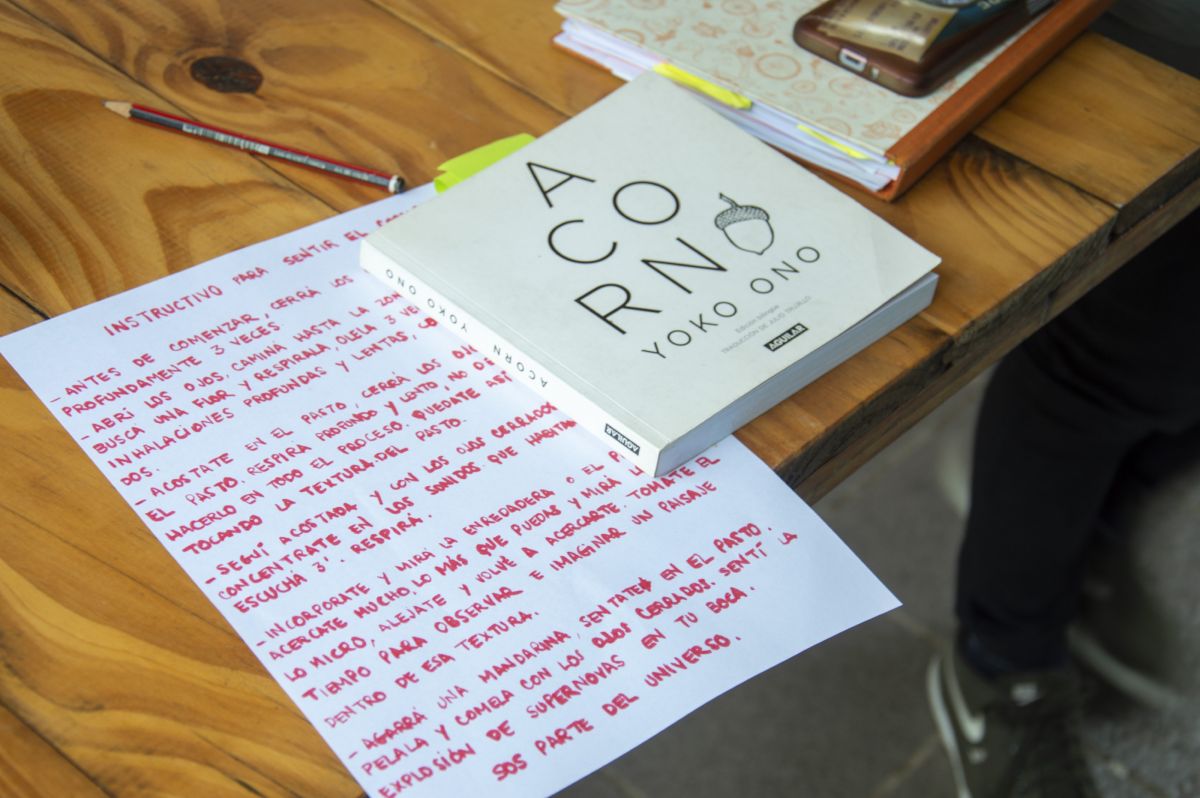 A
C O
R N
YOKO ONO
Edición bilingüe
TRADUCCIÓN DE JULIO TRUJILLO
AGUILAR
YOKO ONO ACORN AGUILAR
INSTRUCTIVO PARA SENTIR EL
- ANTES DE COMENZAR, CERRÁ LOS
PROFUNDAMENTE 3 VECES
- ABRÍ LOS OJOS, CAMINÁ HASTA LA ZON
BUSCA UNA FLOR Y RESPIRALA, OLELA 3 VEC
INHALACIONES PROFUNDAS Y LENTAS, CO
DOS.
- ACOSTATE EN EL PASTO, CERRÁ LOS OJO
EL PASTO. RESPIRÁ PROFUNDO Y LENTO, NO D
HACERLO EN TODO EL PROCESO. QUEDATE ASÍ
TOCANDO LA TEXTURA DEL PASTO.
- SEGUÍ ACOSTADA Y CON LOS OJOS CERRADOS
CONCENTRATE EN LOS SONIDOS QUE HABITA
ESCUCHA 3'. RESPIRÁ.
- INCORPORATE Y MIRÁ LA ENREDADERA O EL P
ACERCATE MUCHO, LO MÁS QUE PUEDAS Y MIRÁ
LO MICRO, ALEJATE Y VOLVÉ A ACERCARTE. TOMATE EL
TIEMPO PARA OBSERVAR E IMAGINAR UN PAISAJE
DENTRO DE ESA TEXTURA.
- AGARRÁ UNA MANDARINA, SENTATE EN EL PASTO.
PELALA Y COMELA CON LOS OJOS CERRADOS. SENTÍ LA
EXPLOSIÓN DE SUPERNOVAS EN TU BOCA.
SOS PARTE DEL UNIVERSO.